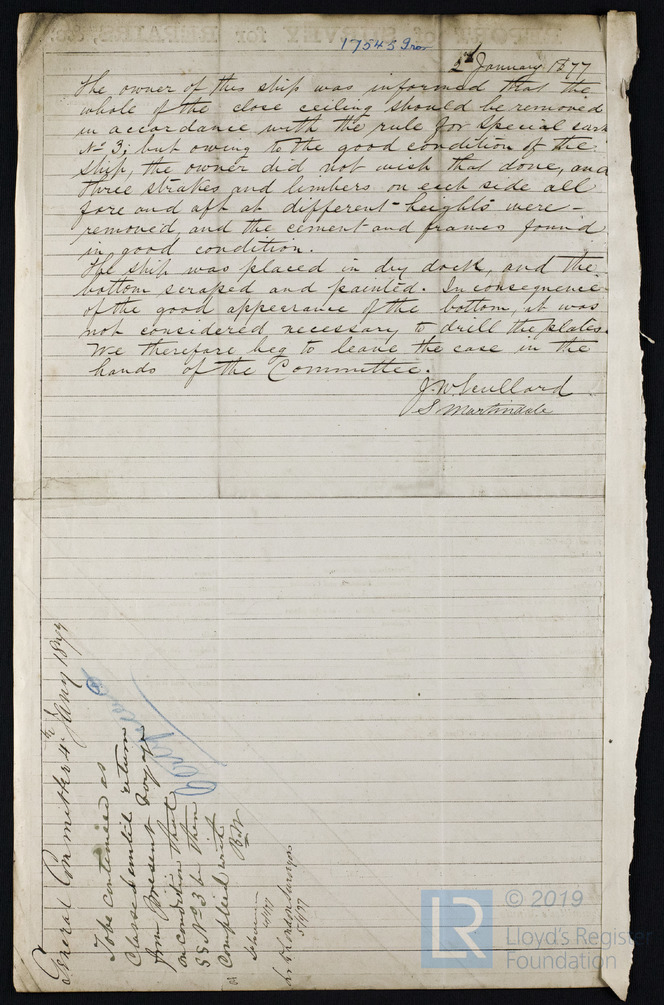 17545 Iron
2nd January 1877
The owner of this ship was informed that the
whole of the close ceiling should be removed
in accordance with the rule for Special Surv
No 3; but owing to the good condition of the
ship, the owner did not wish that done, and
three strakes and limbers on each side all
fore and aft at different heights were -
removed, and the cement and frames found
in good condition.
The ship was placed in dry dock, and the
bottom scraped and painted. In consequence
of the good appearance of the bottom, it was
not considered necessary to drill the plates.
We therefore beg to leave the case in the
hands of the Committee.
J. W. Scullard
S Martindale
General Committee 4th Jany 1877
To be continued as
Classed until return
from present voyage
on condition that
SS No 3 be then
Complied with
B W
London Surveyors
5/1/77
LR © 2019
Lloyd's Register
Foundation